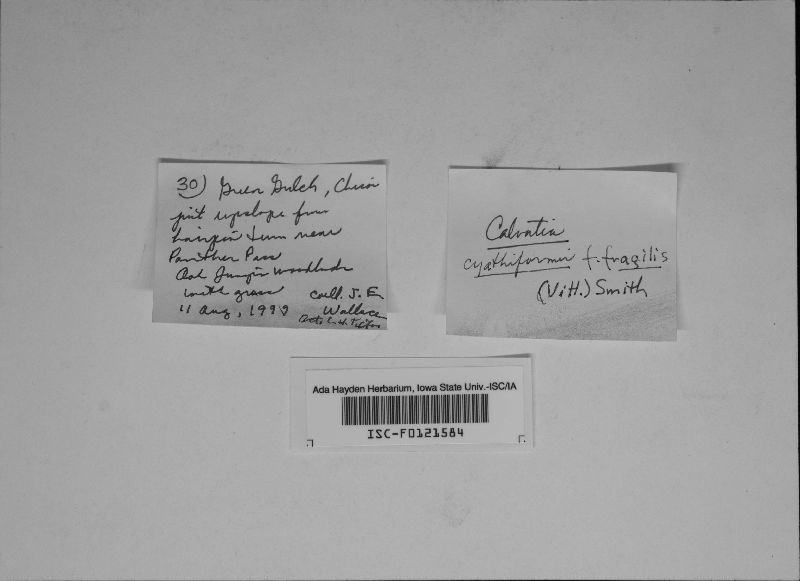 30) Green Gulch, Chisos
just upslope from
hairpin turn near
Panther Pass
Oak Juniper Woodlands
with grass coll. J. E.
11 Aug, 1990 Wallace
Calvatia
cyathiformis f. fragilis
(Vitt.) Smith
Ada Hayden Herbarium, Iowa State Univ.-ISC/IA
ISC-F0121584